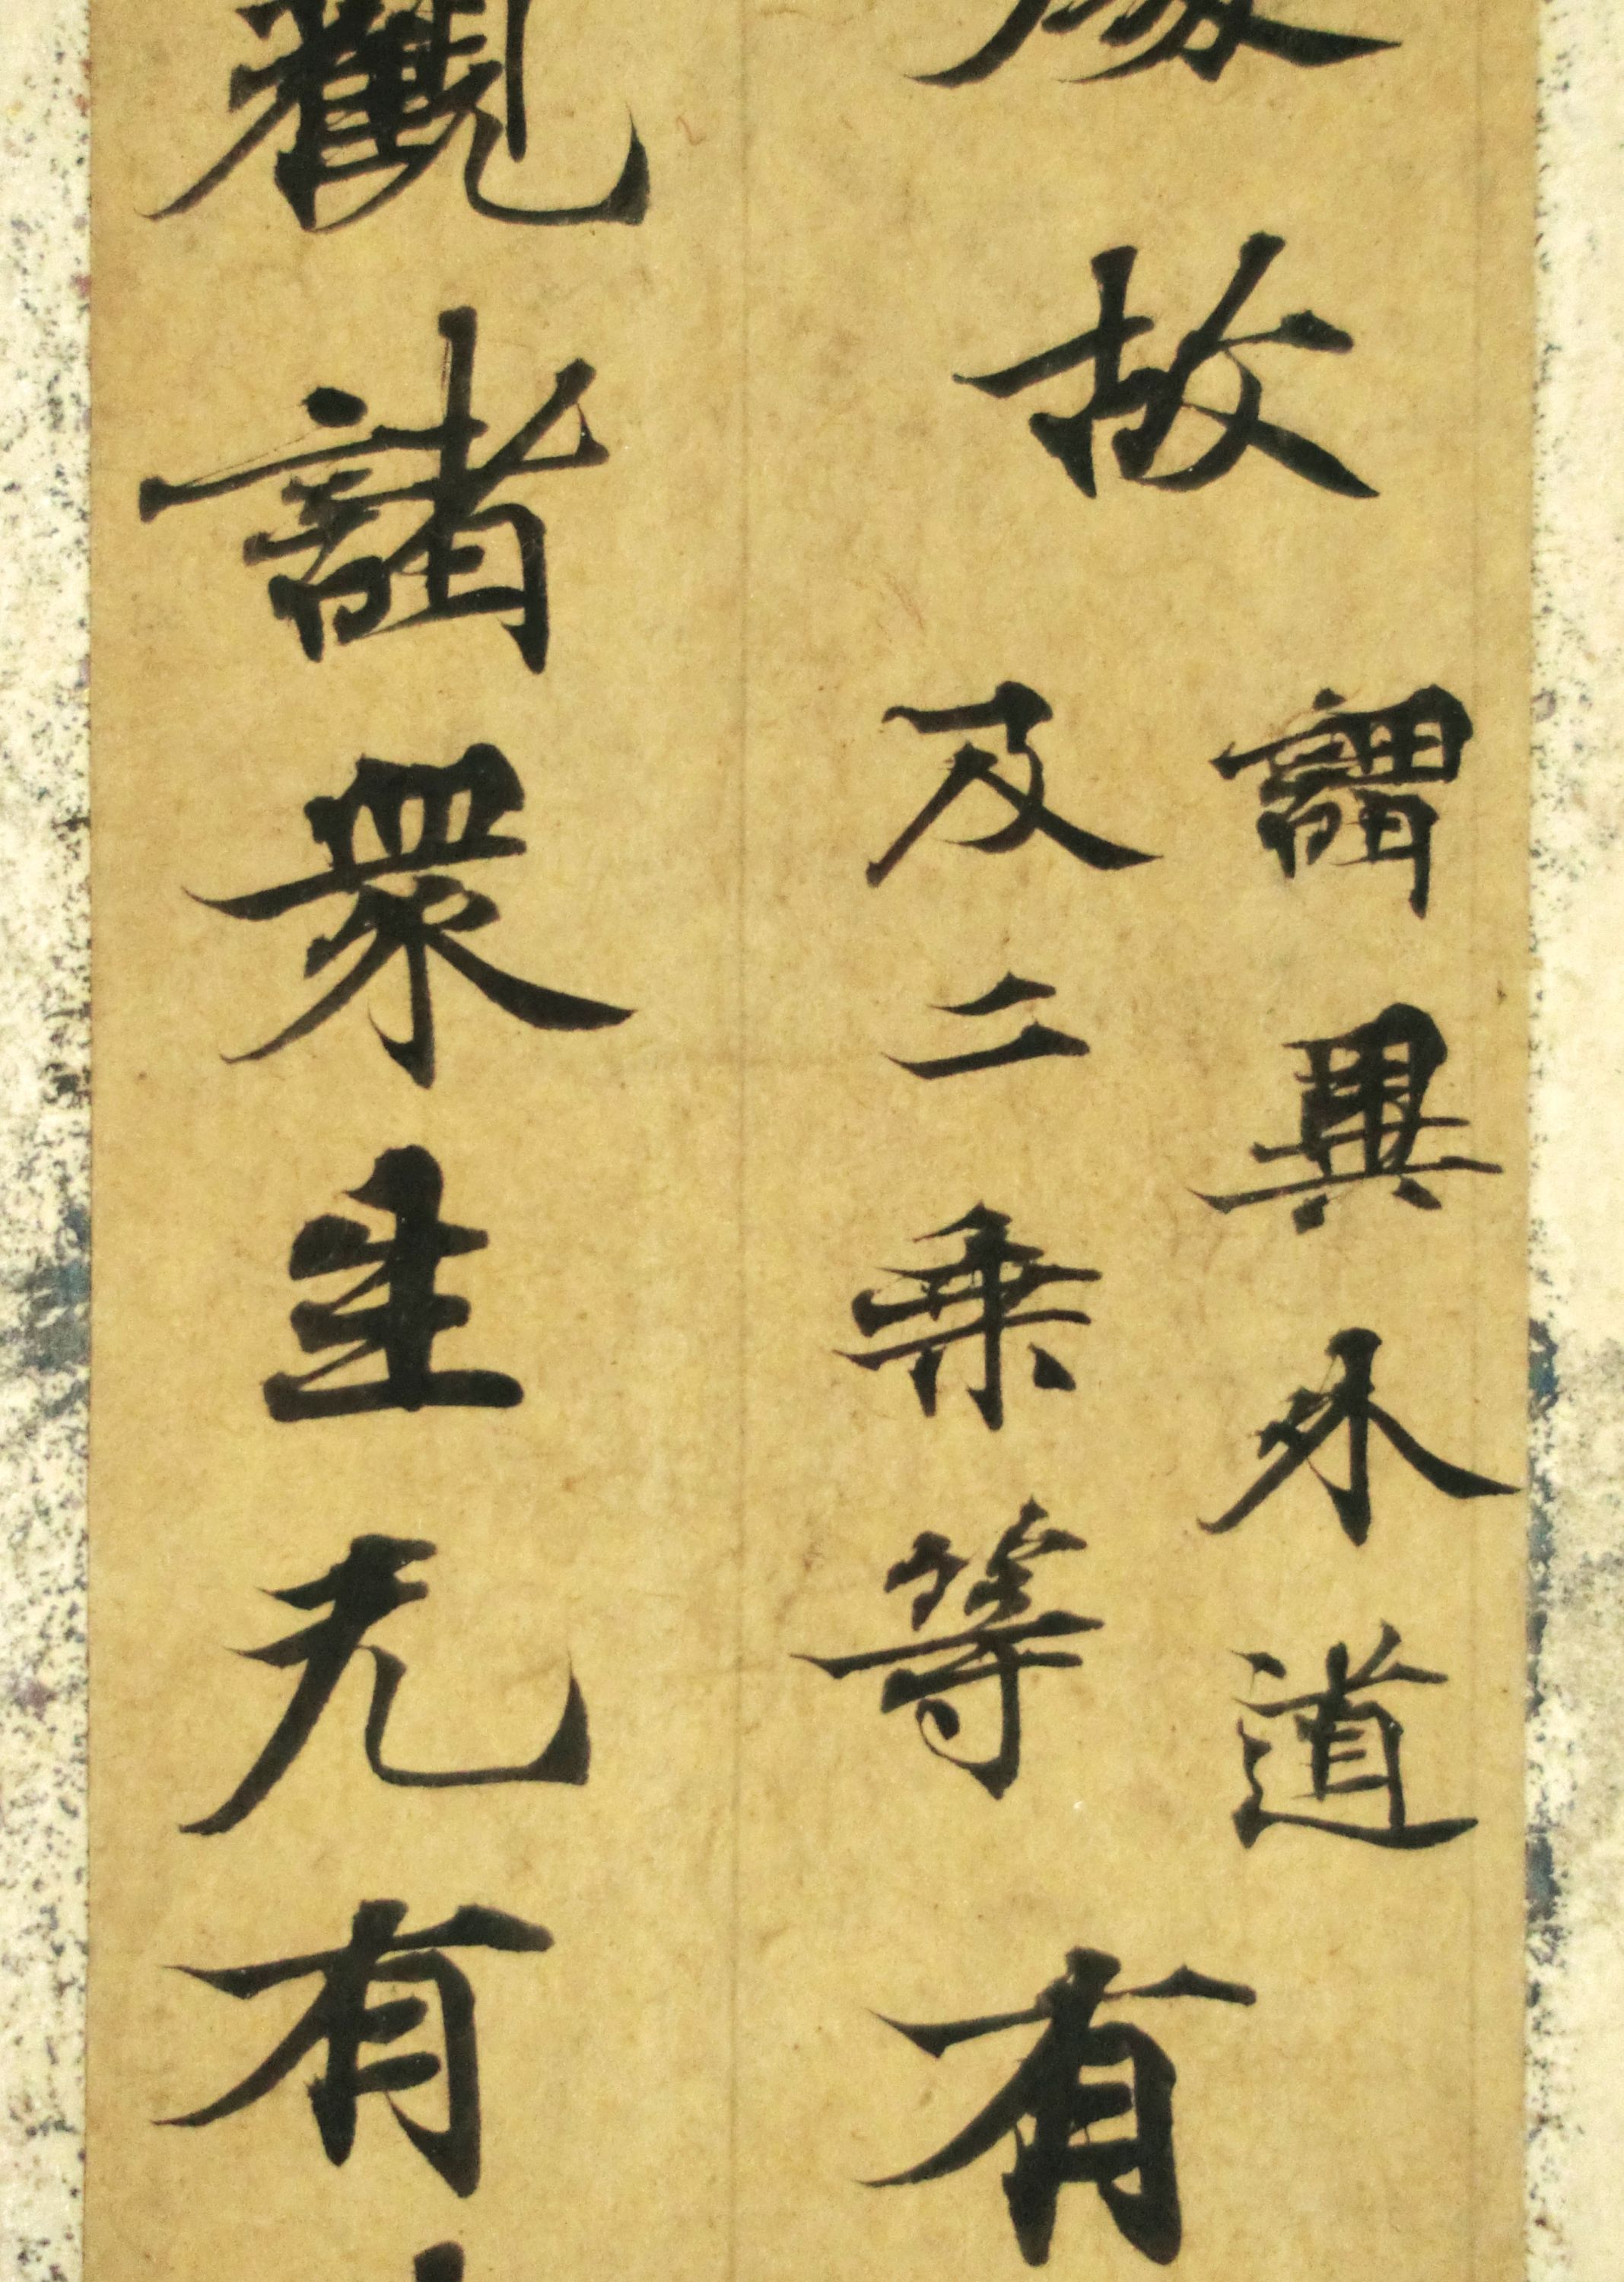 故
謂異外道
及二乗等
有
觀諸衆生无有